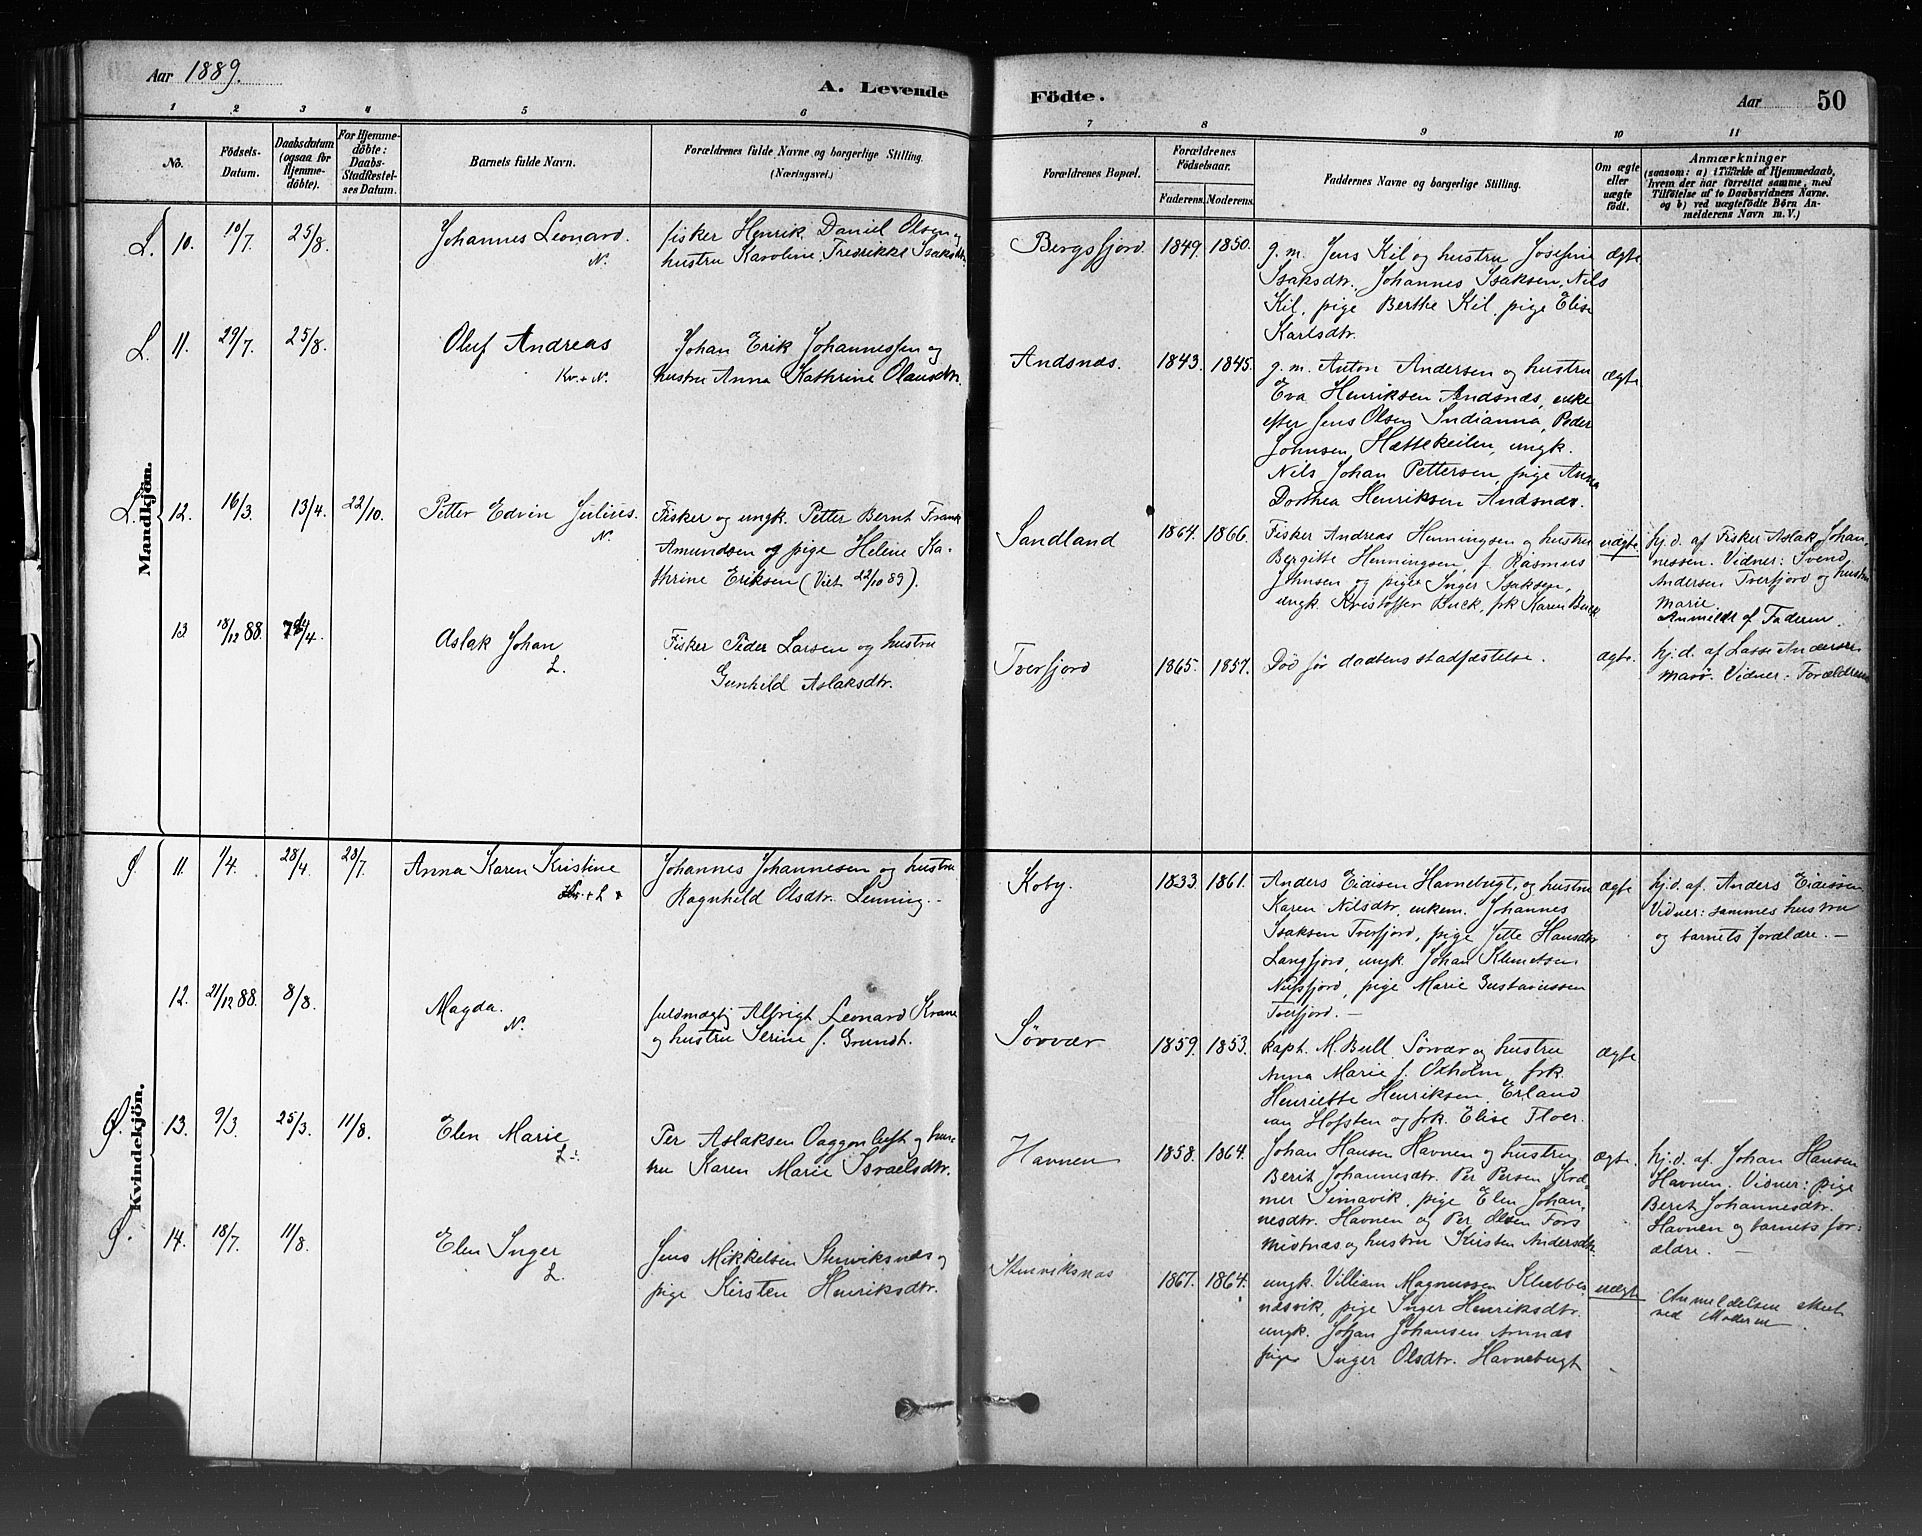 Aar 1889.
A. Levende
Födte.
Aar
50
1 2 3 4 5 6 7 8 9 10 11
No.
Födsels-
Datum.
Daabsdatum
(ogsaa for
Hjemme-
döbte).
For Hjemme-
döbte:
Daabs-
Stadfæstel-
ses Datum.
Barnets fulde Navn.
Forældrenes fulde Navne og borgerlige Stilling.
(Næringsvei.)
Forældrenes Bopæl.
Forældrenes
Födselsaar.
Faderens.
Moderens.
Faddernes Navne og borgerlige Stilling.
Om ægte
eller
uægte
födt.
Anmærkninger
(saasom: a) i Tilfælde af Hjemmedaab,
hvem der har forrettet samme, med
Tilföielse af to Daabsvidners Navne.
og b) ved uægtefödte Börn An-
melderens Navn m. V.)
Mandkjön.
L. 10. 10/7 25/8. Johannes Leonard.
N.
fisker Henrik Daniel Olsen og
hustru Karoline Fredrikke Isaksdtr.
Bergsfjord 1849. 1850.
g. m. Jens Kil og hustru Josefine
Isaksdtr. Johannes Isaksen, Nils
Kil, pige Berthe Kil, pige Elise
Karlsdtr.
ægte
L. 11. 29/7. 25/8. Oluf Andreas
Kv. + N.
Johan Erik Johannessen og
hustru Anna Kathrine Olausdtr.
Andsnæs. 1843. 1845.
g. m. Anton Andersen og hustru
Eva Henriksen Andsnæs, enke
efter Jens Olsen Indianna, Peder
Johnsen Hættekeilen, ungk.
Nils Johan Pettersen, pige Anna
Dorthea Henriksen Andsnæs.
ægte
L. 12. 16/3. 13/4. 22/10. Petter Edvin Julius.
N.
Fisker og ungk. Petter Bernt Frank
Amundsen og pige Helene Ka-
thrine Eriksen (Viet 22/10 89).
Sandland 1864. 1866.
Fisker Andreas Henningsen og hustru
Bergitte Henningsen, f. Rasmus
Johnsen og pige Inger Isaksen,
ungk. Kristoffer Buck, frk Karen Buck
uægte
hj.d. af Fisker Aslak Johan-
nessen. Vidner: Svend
Andersen Tverfjord og hustru
Marie.
Anmeldt af Faderen.
13 18/12 88. /4. Aslak Johan
L.
Fisker Peder Larsen og hustru
Gunhild Aslaksdtr.
Tverfjord 1865. 1857. Død før daabens stadfæstelse. ægte.
hj.d. af Lasse Andersen
Marø. Vidner: Forældrene
Kvindekjön.
Ø. 11. 1/4. 28/4 28/7 Anna Karen Kristine
+ L
Johannes Johannesen og hustru
Ragnhild Olsdtr. Lenning.
Koby. 1833. 1861.
Anders Eidisen Havnebugt, og hustru
Karen Nilsdtr, enkem. Johannes
Isaksen Tverfjord, pige Jette Hansdtr
Langfjord, ungk. Johan Klemetsen
Nufsfjord, pige Marie Gustavussen
Tverfjord. —
ægte
hj.d. af. Anders Eidissen
Vidner: sammes hustru
og barnets forældre. —
12. 21/12 88. 8/8. Magda.
N.
fuldmægtig Albrigt Leonard Krane
og hustru Serine f. Grundt.
Sørvær 1859. 1853.
kapt. M. Bull Sørvær og hustru
Anna Marie f. Oxholm, frk.
Henriette Henriksen, Erland
van Hofsten og frk. Elise Floer.
ægte
Ø. 13. 9/3. 25/3. 11/8. Elen Marie
L.
Per Aslaksen Oaggonluft og hus-
tru Karen Marie Israelsdtr.
Havnen 1858. 1864.
Johan Hansen Havnen og hustru
Berit Johannesdtr. Per Persen Kvæ-
mer Simavik, pige Elen Johan-
nesdtr. Havnen og Per Olsen Fors
Mistnæs og hustru Kirsten Andersdtr.
ægte.
hj.d. af Johan Hansen
Havnen. Vidner: pige
Berit Johannesdtr.
Havnen og barnets for-
ældre. —
Ø. 14. 18/7. 11/8. Elen Inger
L.
Jens Mikkelsen Stenviksnæs og
pige Kirsten Henriksdtr.
Stenviksnæs 1867. 1864.
ungk. Villiam Magnussen Klubbe-
næsvik, pige Inger Henriksdtr.
ungk. Johan Johansen Arnnæs
pige Inger Olsdtr. Havnebugt
uægte
Anmeldelsen skeet
ved Moderen